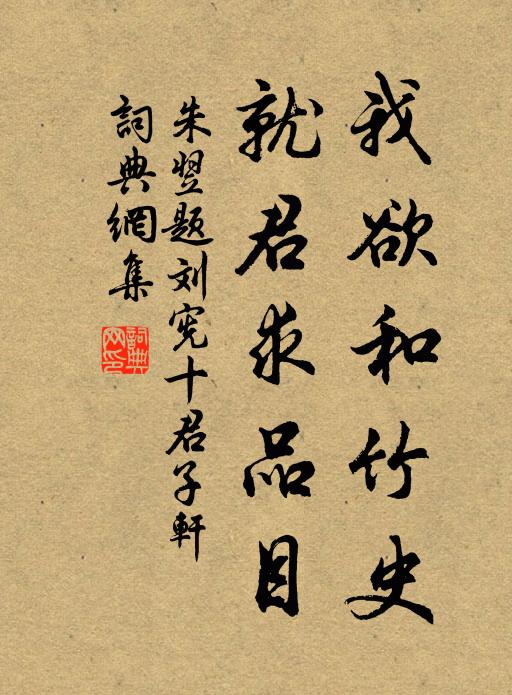 我欲和竹史
就君求品目
朱翌题刘宪十君子軒
詞典網集
詞典網印